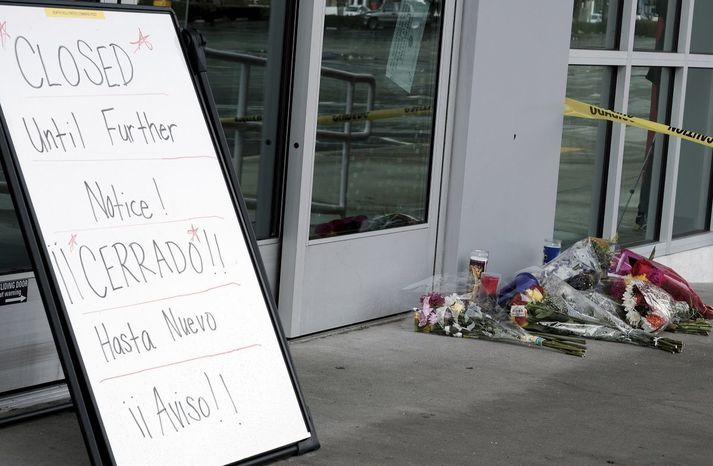 CLOSED
Until Further
Notice!
¡¡CERRADO!!
Hasta Nuevo
¡¡Aviso!!
LIDING DOOR
CAUTION